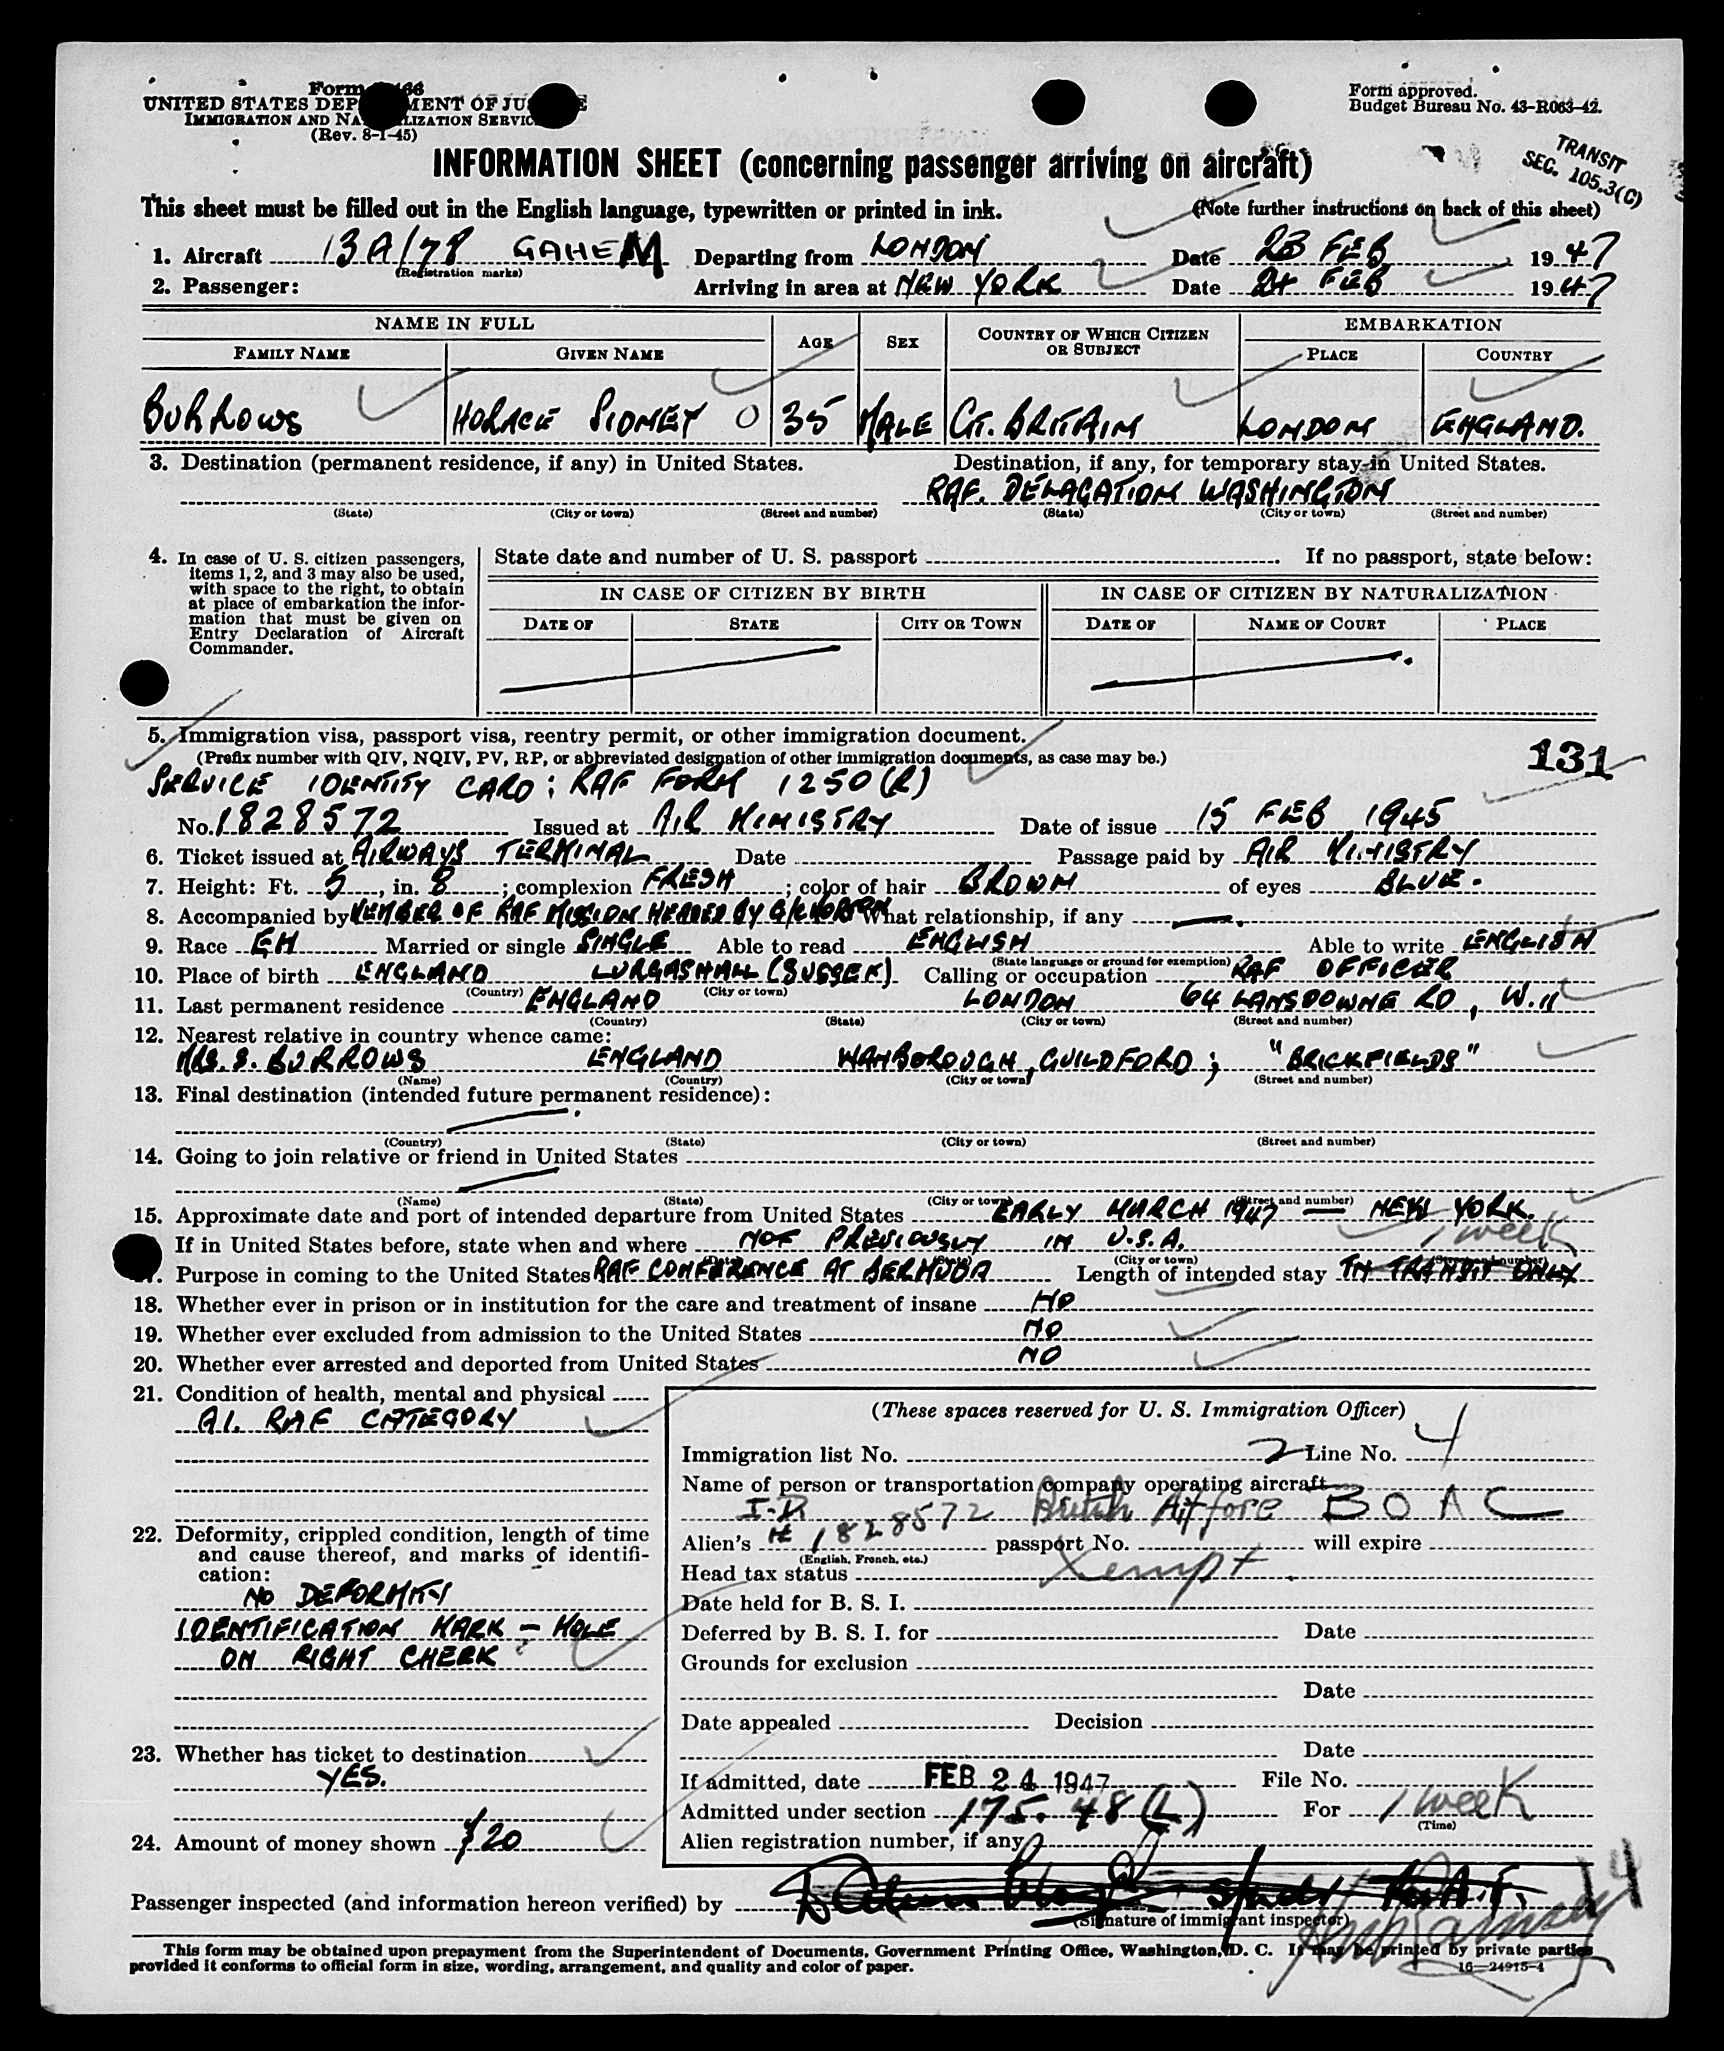 Form 466
UNITED STATES DEPARTMENT OF JUSTICE
IMMIGRATION AND NATURALIZATION SERVICE
(Rev. 8-1-45)
Form approved.
Budget Bureau No. 43-R063-42.
TRANSIT
SEC. 105.3(C)
INFORMATION SHEET (concerning passenger arriving on aircraft)
This sheet must be filled out in the English language, typewritten or printed in ink. (Note further instructions on back of this sheet)
1. Aircraft BA/78 GAHEM Departing from LONDON Date 23 FEB 1947
(Registration marks)
2. Passenger: Arriving in area at NEW YORK Date 24 FEB 1947
NAME IN FULL AGE SEX COUNTRY OF WHICH CITIZEN OR SUBJECT EMBARKATION
FAMILY NAME GIVEN NAME PLACE COUNTRY
BURROWS HORACE SIDNEY O 35 MALE GT. BRITAIN LONDON ENGLAND.
3. Destination (permanent residence, if any) in United States. Destination, if any, for temporary stay in United States.
RAF. DELAGATION WASHINGTON
(State) (City or town) (Street and number) (State) (City or town) (Street and number)
4. In case of U. S. citizen passengers, items 1, 2, and 3 may also be used, with space to the right, to obtain at place of embarkation the information that must be given on Entry Declaration of Aircraft Commander.
State date and number of U. S. passport If no passport, state below:
IN CASE OF CITIZEN BY BIRTH IN CASE OF CITIZEN BY NATURALIZATION
DATE OF STATE CITY OR TOWN DATE OF NAME OF COURT PLACE
5. Immigration visa, passport visa, reentry permit, or other immigration document.
(Prefix number with QIV, NQIV, PV, RP, or abbreviated designation of other immigration documents, as case may be.)
131
SERVICE IDENTITY CARD: RAF FORM 1250(R)
No. 1828572 Issued at AIR MINISTRY Date of issue 15 FEB 1945
6. Ticket issued at AIRWAYS TERMINAL Date Passage paid by AIR MINISTRY
7. Height: Ft. 5, in. 8; complexion FRESH; color of hair BROWN of eyes BLUE.
8. Accompanied by MEMBER OF RAF MISSION HEADED BY G/C NORTON What relationship, if any
9. Race EN Married or single SINGLE Able to read ENGLISH Able to write ENGLISH
(State language or ground for exemption)
10. Place of birth ENGLAND LURGASHALL (SUSSEX) Calling or occupation RAF OFFICER
(Country) (City or town)
11. Last permanent residence ENGLAND LONDON 64 LANSDOWNE RD, W.11
(Country) (State) (City or town) (Street and number)
12. Nearest relative in country whence came:
MRS. S. BURROWS ENGLAND WANBOROUGH, GUILDFORD; "BRICKFIELDS"
(Name) (Country) (City or town) (Street and number)
13. Final destination (intended future permanent residence):
(Country) (State) (City or town) (Street and number)
14. Going to join relative or friend in United States
(Name) (State) (City or town) (Street and number)
15. Approximate date and port of intended departure from United States EARLY MARCH 1947 — NEW YORK.
If in United States before, state when and where NOT PREVIOUSLY IN U.S.A. 1 week
(Date) (State) (City or town) (Street and number)
17. Purpose in coming to the United States RAF CONFERENCE AT BERMUDA Length of intended stay IN TRANSIT ONLY
18. Whether ever in prison or in institution for the care and treatment of insane NO
19. Whether ever excluded from admission to the United States NO
20. Whether ever arrested and deported from United States NO
21. Condition of health, mental and physical
A1. RAF CATEGORY
22. Deformity, crippled condition, length of time and cause thereof, and marks of identification:
NO DEFORMITY
IDENTIFICATION MARK - MOLE
ON RIGHT CHEEK
23. Whether has ticket to destination
YES.
24. Amount of money shown $20
(These spaces reserved for U. S. Immigration Officer)
Immigration list No. 2 Line No. 4
Name of person or transportation company operating aircraft
I-D British Airforce BOAC
Alien's # 1828572 passport No. will expire
(English, French, etc.)
Head tax status Xempt.
Date held for B. S. I.
Deferred by B. S. I. for Date
Grounds for exclusion
Date
Date appealed Decision
Date
If admitted, date FEB 24 1947 File No.
Admitted under section 175.48(L) For 1 week
(Time)
Alien registration number, if any
14
Passenger inspected (and information hereon verified) by
(Signature of immigrant inspector)
This form may be obtained upon prepayment from the Superintendent of Documents, Government Printing Office, Washington, D. C. It may be printed by private parties
provided it conforms to official form in size, wording, arrangement, and quality and color of paper.
16—24915-4